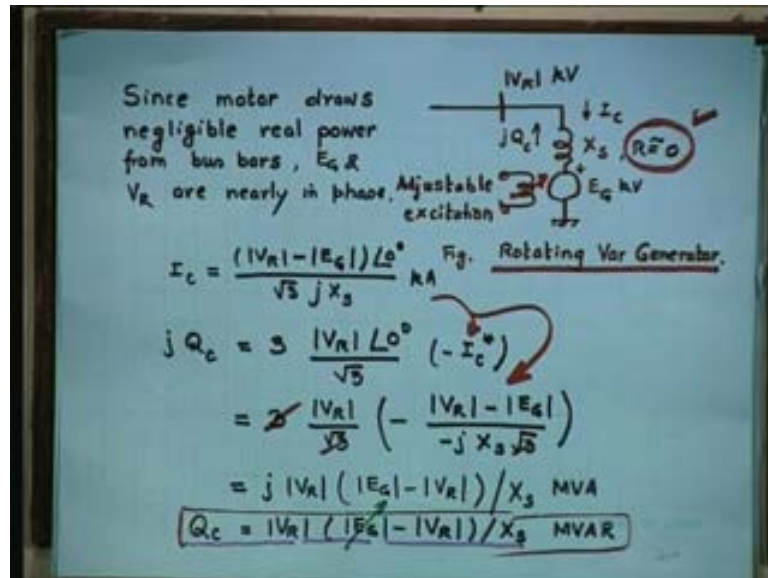 |V_R| kV
Since motor draws
negligible real power
from bus bars, E_G &
V_R are nearly in phase.
↓ I_C
jQ_C ↑
X_S, R≅0
+
E_G kV
Adjustable
excitation
Fig. Rotating Var Generator.
I_C = (|V_R| - |E_G|) ∠0° / √3 j X_S kA
j Q_C = 3 |V_R| ∠0° / √3 (- I_C*)
= 3 |V_R| / √3 (- |V_R| - |E_G| / -j X_S √3)
= j |V_R| (|E_G| - |V_R|) / X_S MVA
Q_C = |V_R| (|E_G| - |V_R|) / X_S MVAR